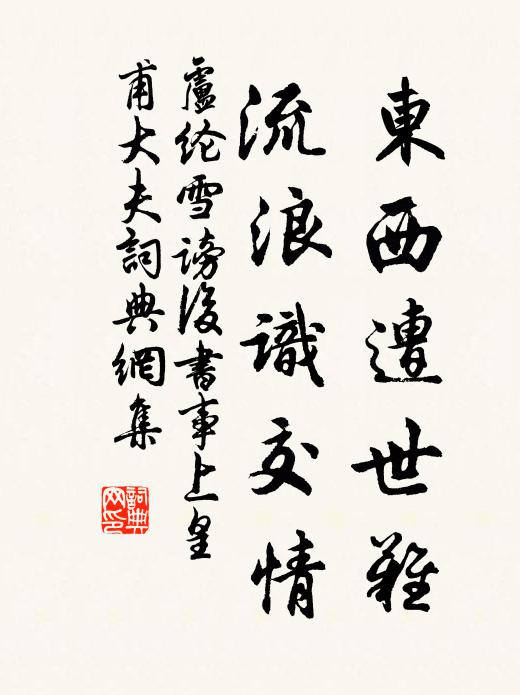 東西遭世難
流浪識交情
盧纶雪謗後書事上皇
甫大夫詞典網集
詞典
网印